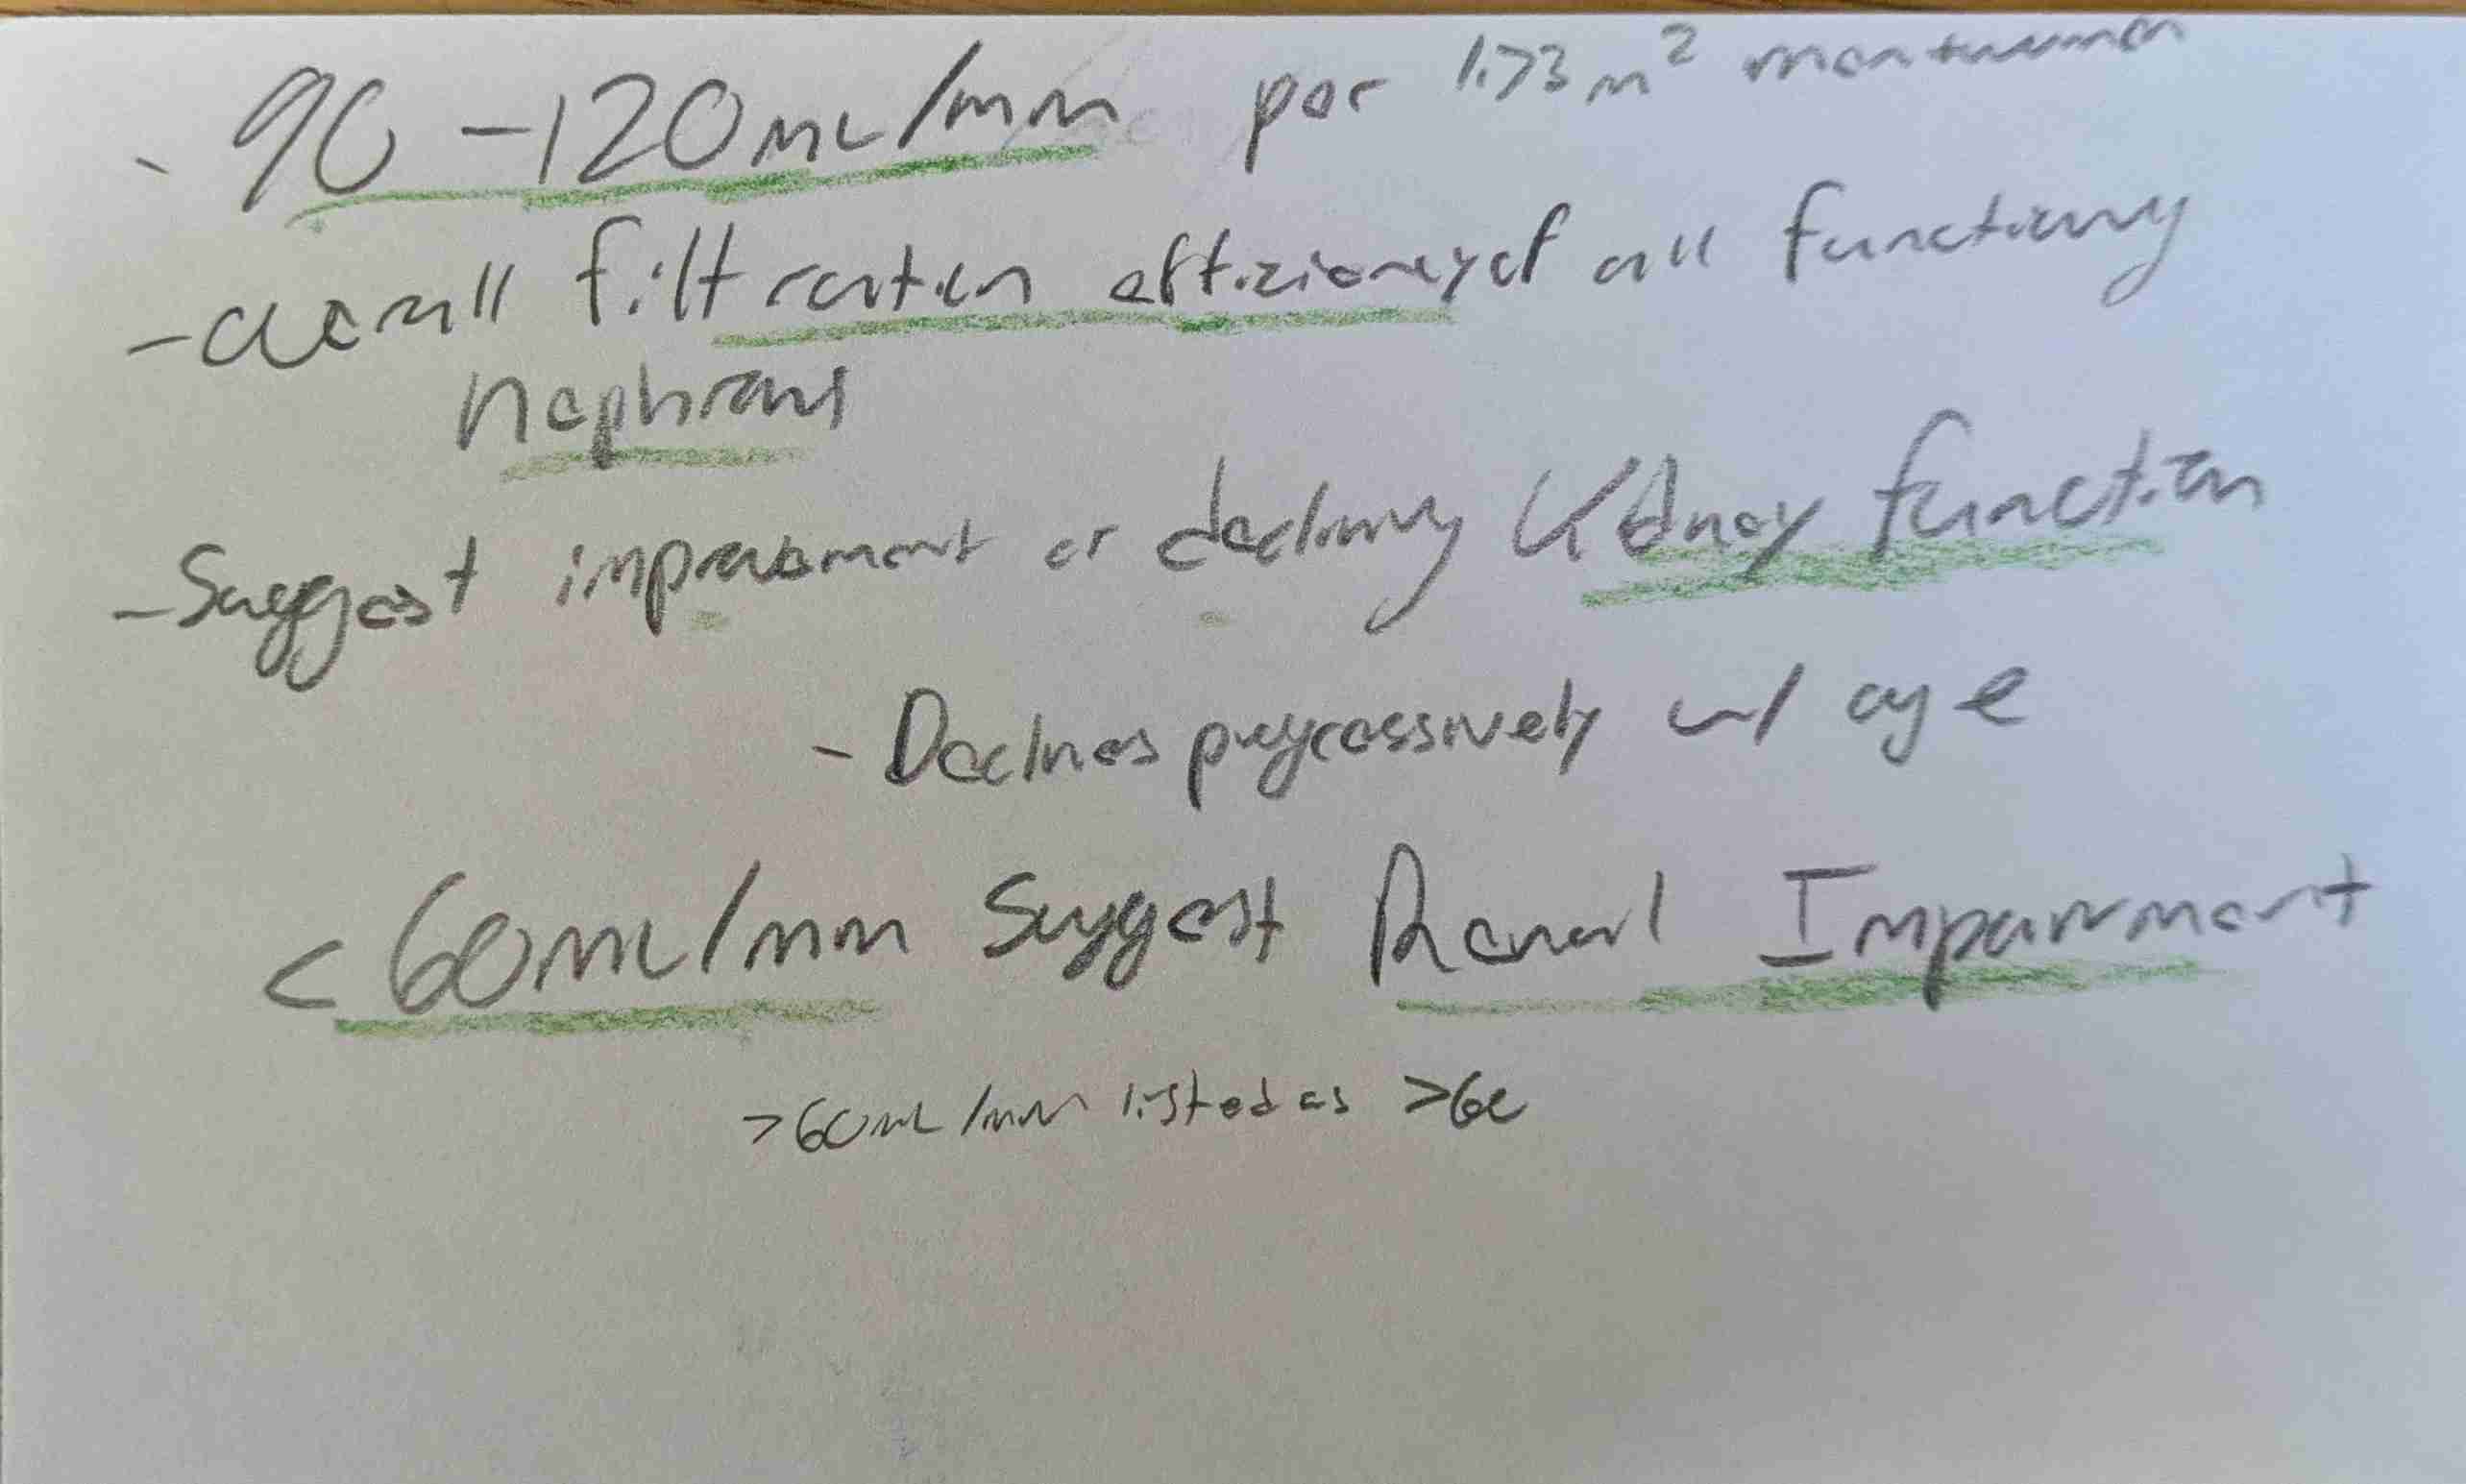 - 90 - 120mL/min per 1.73 m²
- Overall filtration effiziency of all functiony
Nephrons
- Suggest improvement or declining Kidney function
- Declines progressively w/ age
< 60mL/min Suggest Renal Impairment
>60mL/min listed as >60